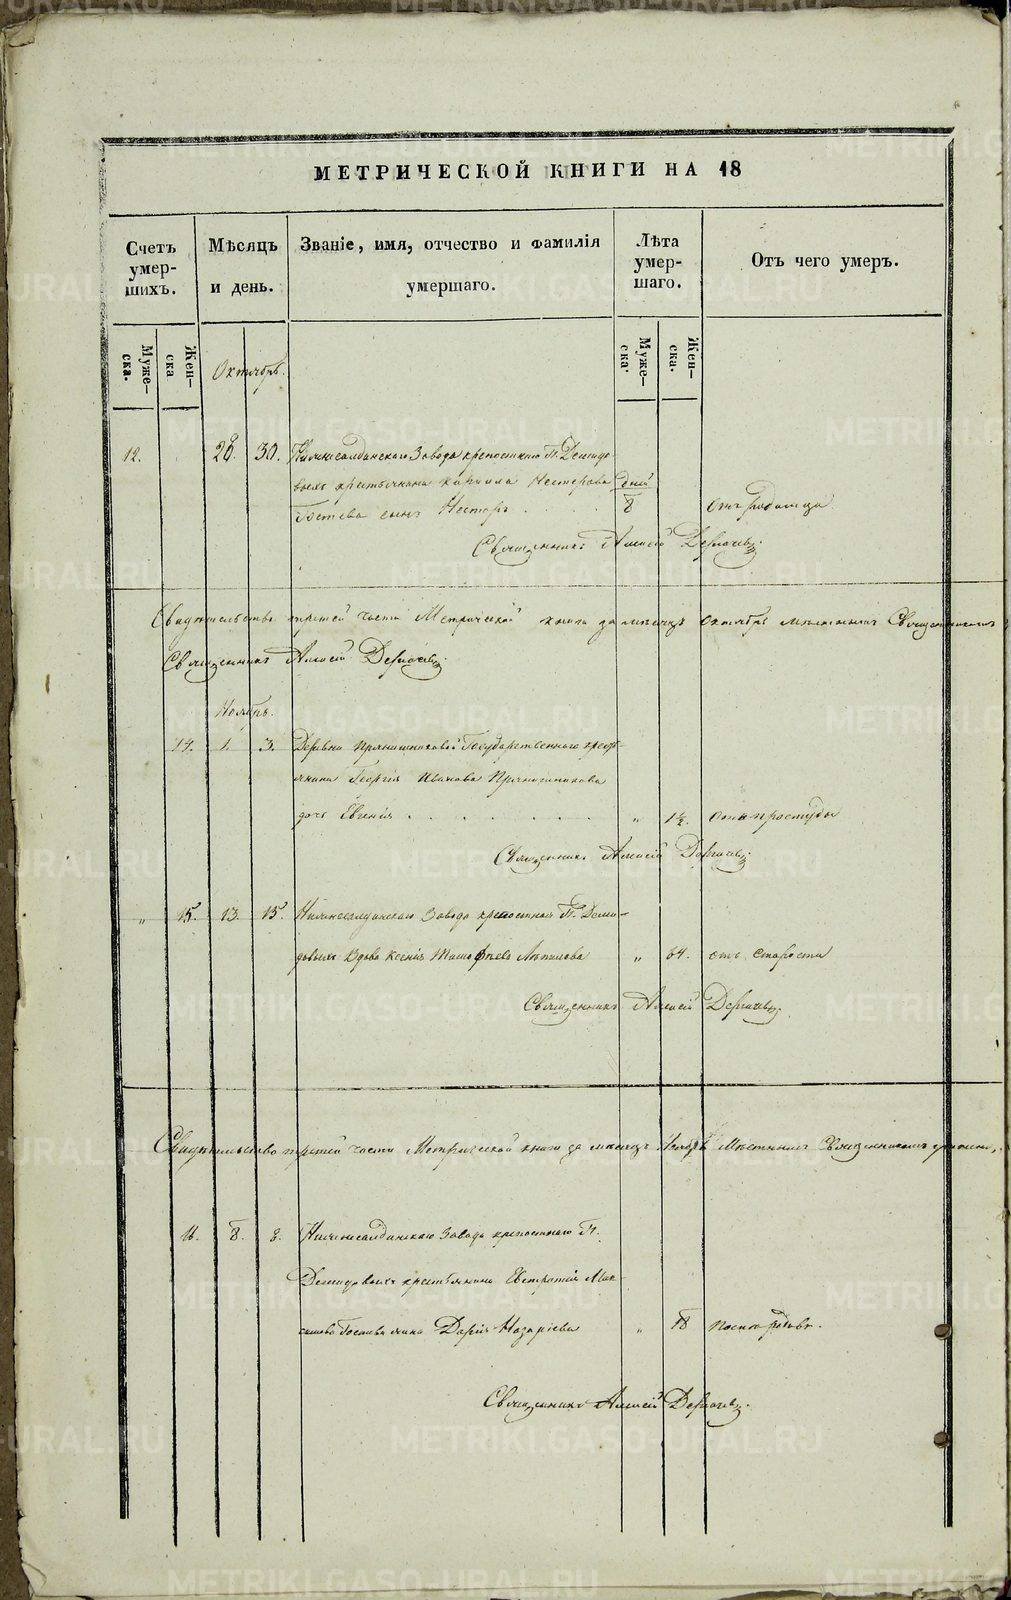 МЕТРИЧЕСКОЙ КНИГИ НА 18
Счетъ умер-шихъ.
Мѣсяцъ и день.
Званіе, имя, отчество и фамилія умершаго.
Лѣта умер-шаго.
Отъ чего умеръ.
Муже-ска.
Жен-ска
Муже-ска.
Жен-ска.
Октябрь.
12. 28. 30. Нижнесалдинскаго Завода крепостнаго Г. Демидо-
выхъ крестьянина Кирилла Нестерова дней
Гостева сынъ Несторъ 8 отъ родимца
Священникъ Алексій
Свидѣтельство третей части Метрической книги за мѣсяцъ Октябрь Священникомъ
Священникъ Алексій
Ноябрь.
14. 1. 3. Деревни Прянишниковой Государственнаго крест-
янина Георгія Иванова Прянишникова
дочь Евгенія „ 1½. отъ простуды
Священникъ Алексій
„ 15. 13. 15. Нижнесалдинскаго Завода крепостная Г. Деми-
довыхъ Вдова Ксенія „ 64. отъ старости
Священникъ Алексій
Свидѣтельство третей части Метрической книги за мѣсяцъ Ноябрь Мѣстнымъ Священникомъ
16. 8. Нижнесалдинскаго Завода крепостнаго Г.
Демидовыхъ крестьянина Евстратія Мак-
симова Гостева жена Дарія Назаріева „ 18 родовъ.
Священникъ Алексій
METRIKI.GASO-URAL.RU